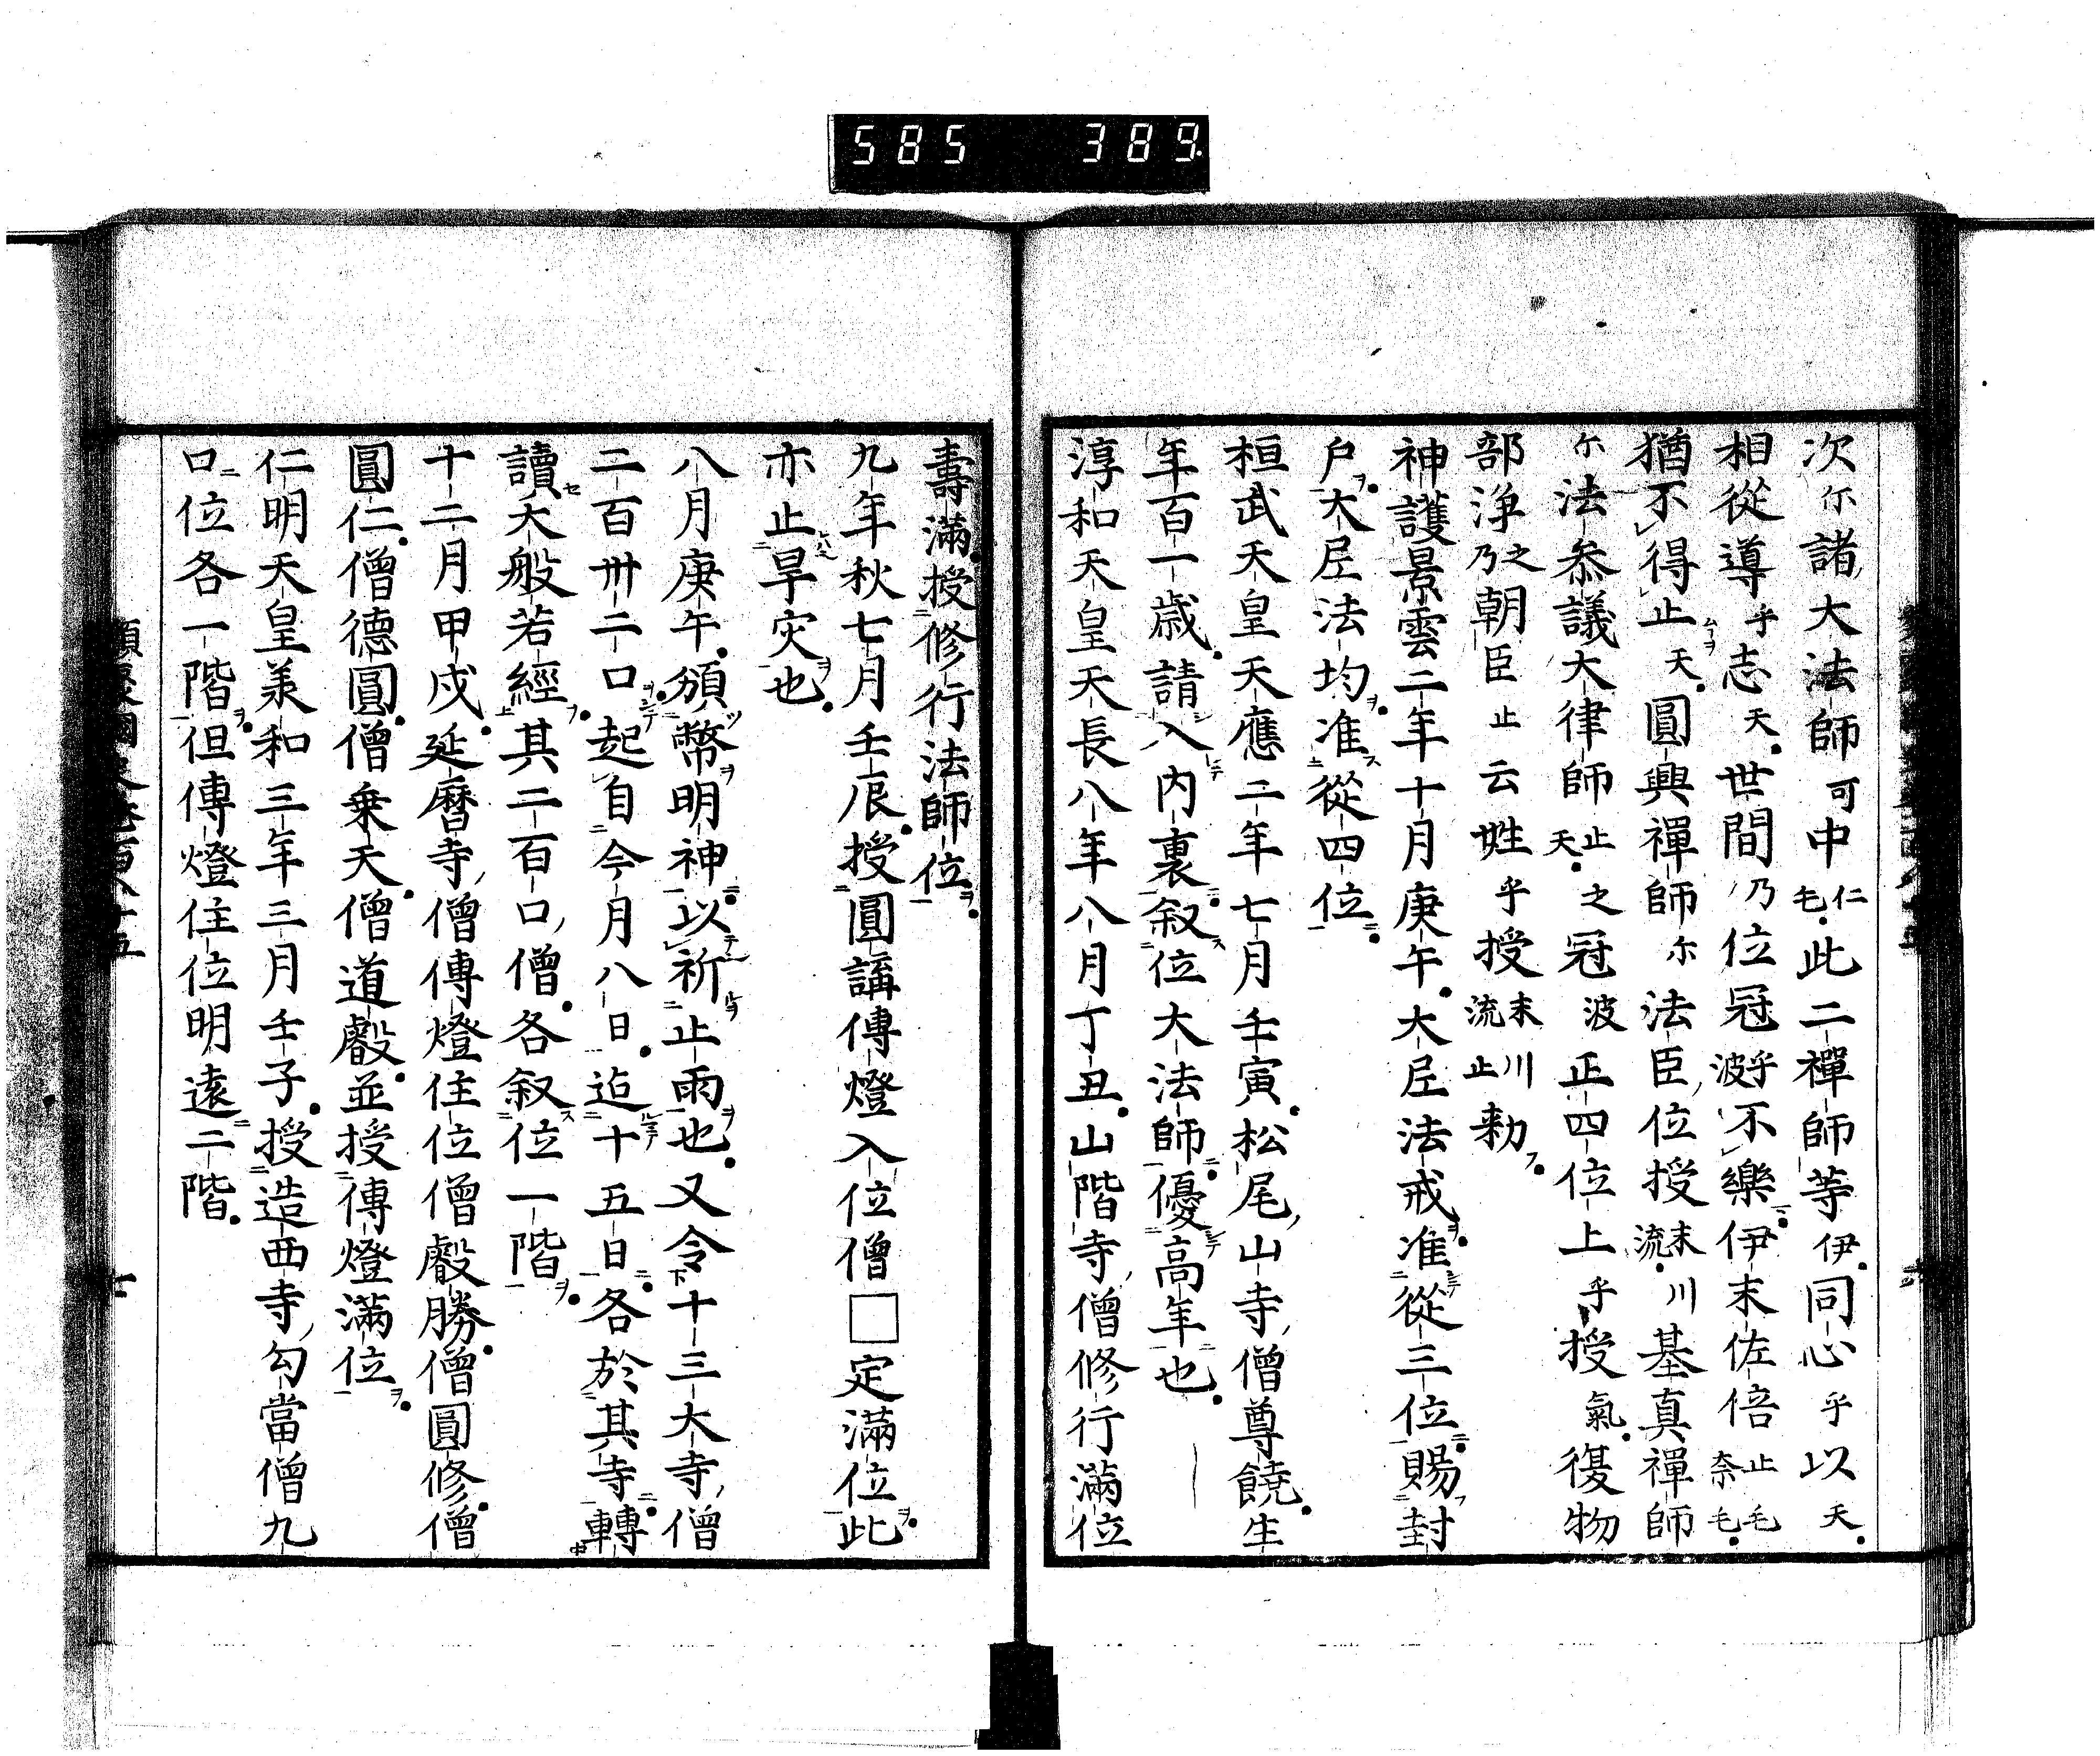 585 389
次尓諸大法師可中仁毛此二禪師等伊同心乎以天
相從導乎志天世間乃位冠乎波不樂伊末佐倍止毛奈毛
猶不得止天圓興禪師尓法臣位授末流川基真禪師
尓法叅議大律師止天之冠波正四位上乎授氣復物
部浄之乃朝臣止云姓乎授末流川止勅
神護景雲二年十月庚午大尼法戒准從三位賜封
戸大尼法均准從四位
桓武天皇天應二年七月壬寅松尾山寺僧尊饒生
年百一歳請入内裏叙位大法師優高年也
淳和天皇天長八年八月丁丑山階寺僧修行滿位
壽滿授修行法師位
九年秋七月壬辰授圓講傳燈入位僧□定滿位此
亦止旱灾也
八月庚午頒幣明神以祈止雨也又令十三大寺僧
二百卅二口起自今月八日迄十五日各於其寺轉
讀大般若經其二百口僧各叙位一階
十二月甲戌延暦寺僧傳燈住位僧慇勝僧圓修僧
圓仁僧德圓僧乗天僧道慇並授傳燈滿位
仁明天皇羕和三年三月壬子授造西寺勾當僧九
口位各一階但傳燈住位明遠二階